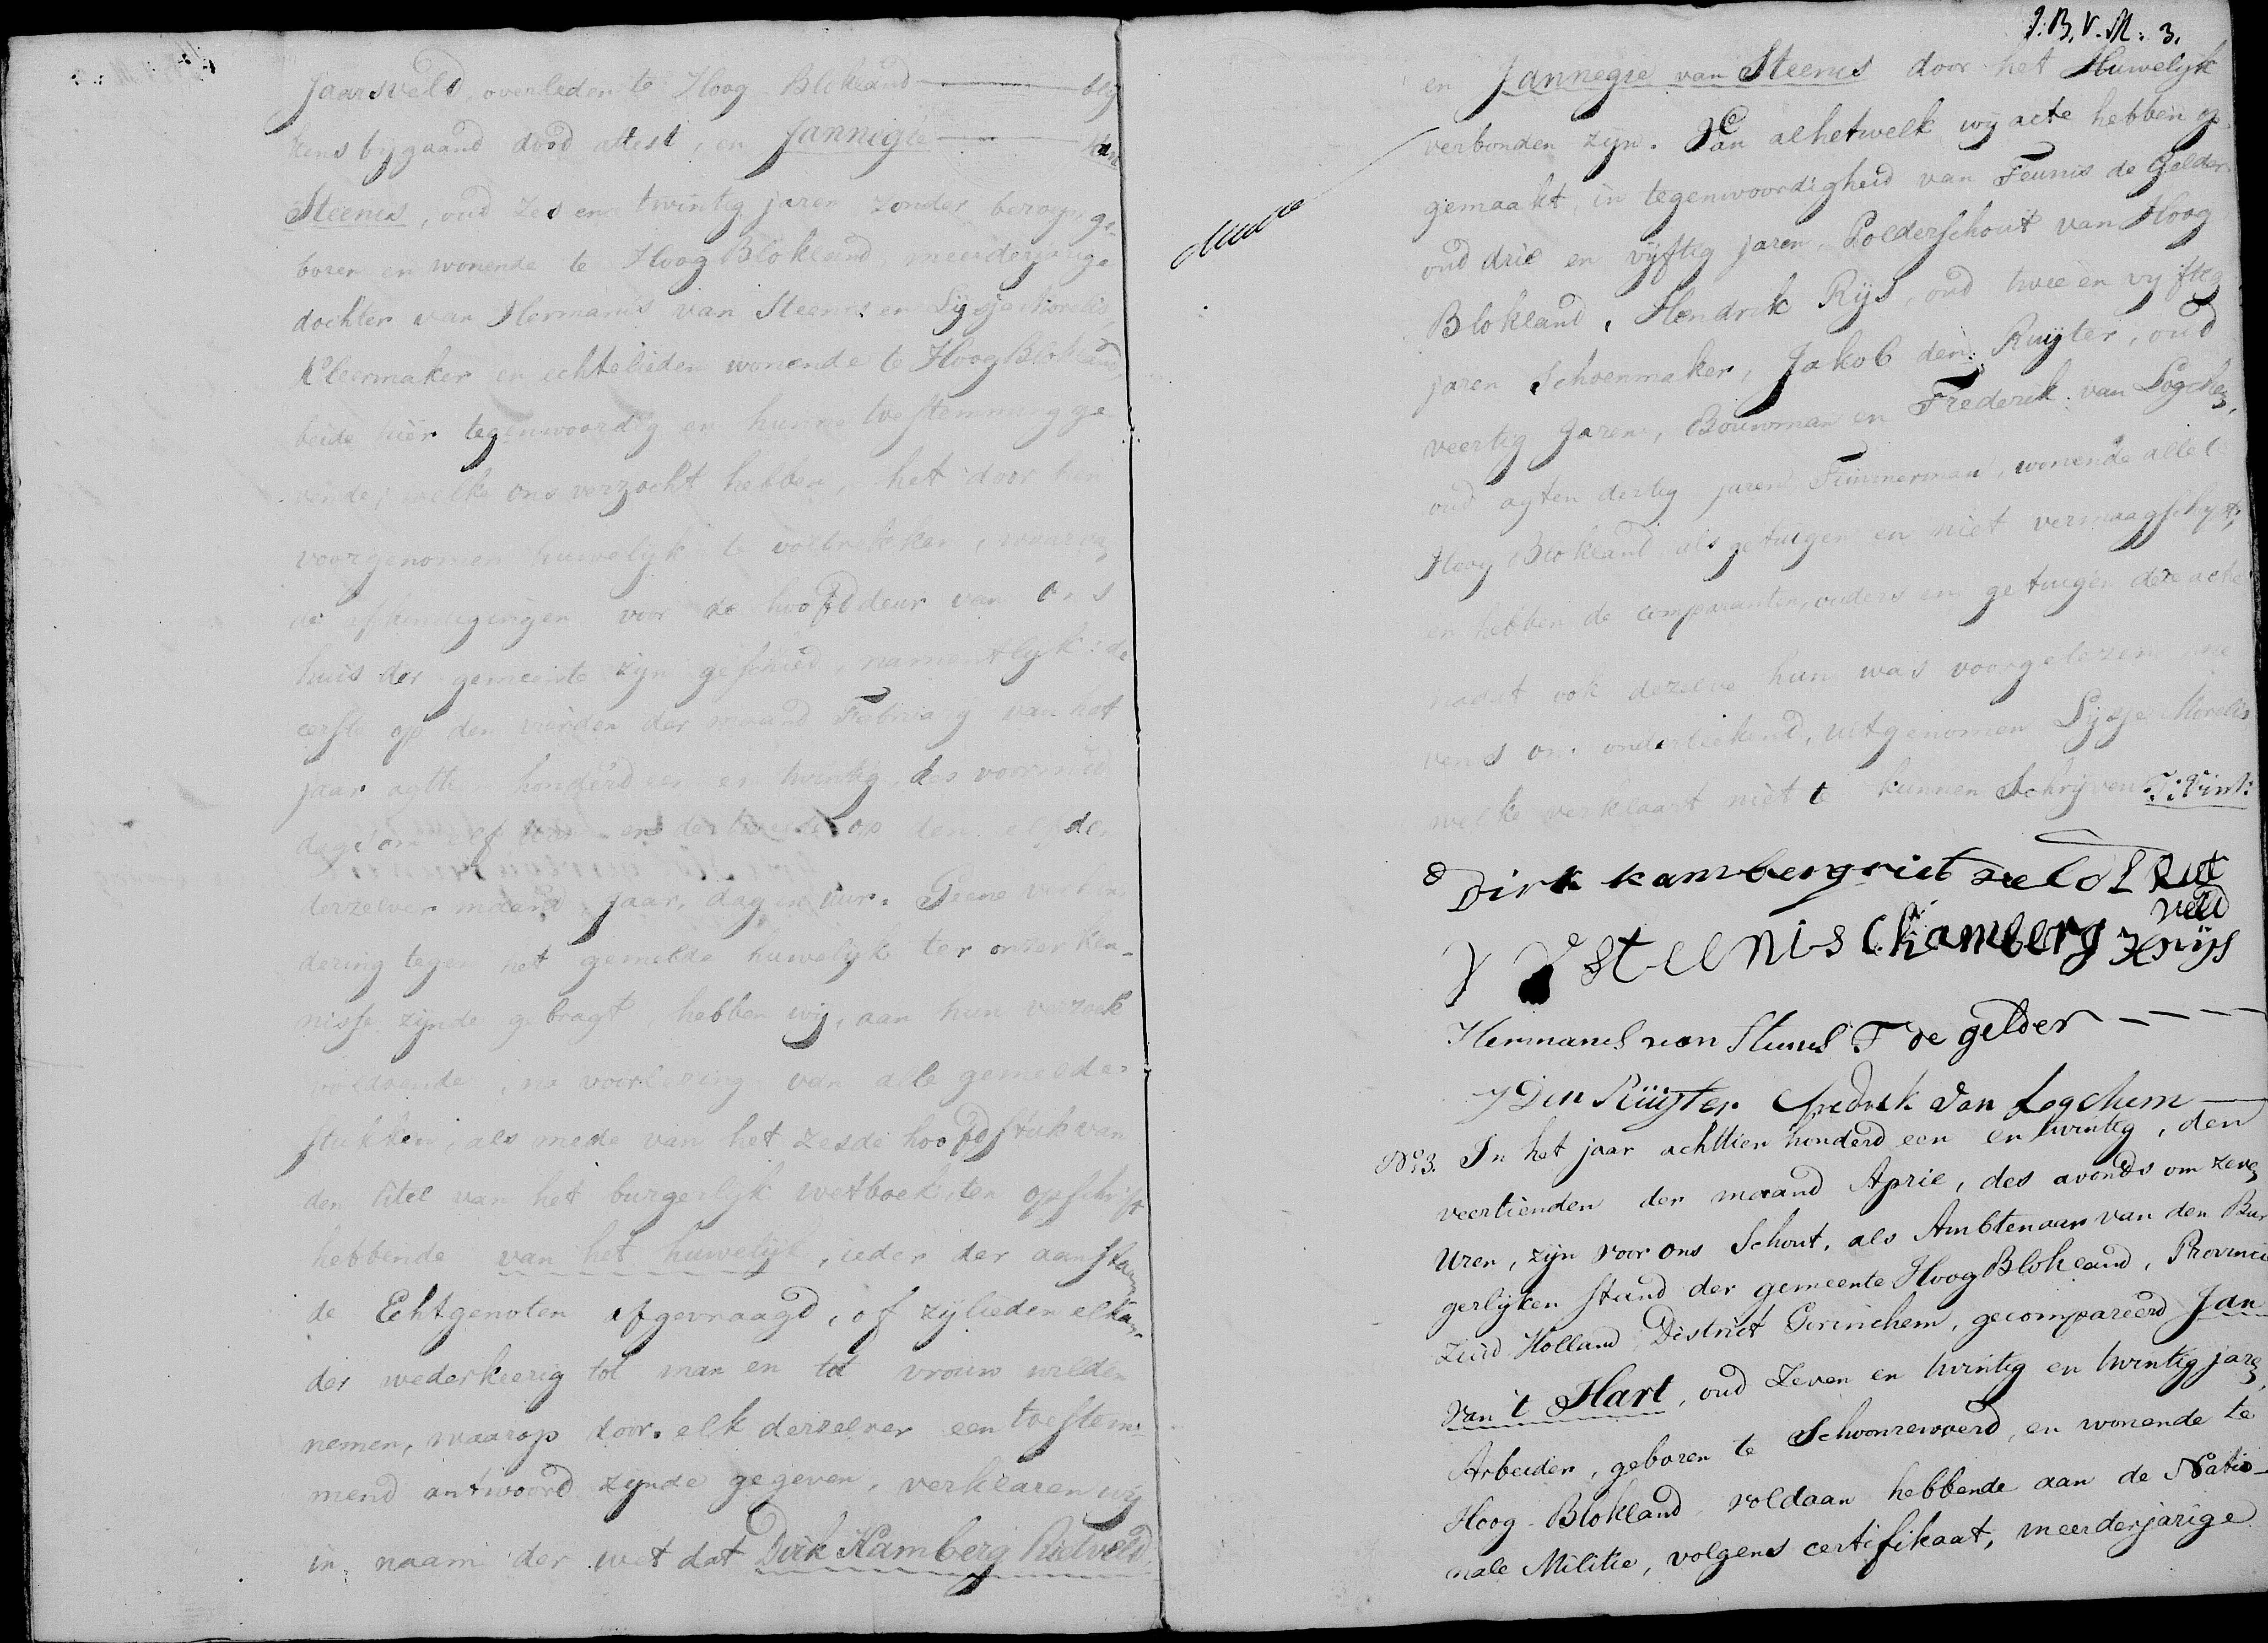 Jaarsveld, overleden te Hoog-Blokland blij
kens bijgaand dood attest, en Jannigie van
Steenis, oud zes en twintig jaren zonder beroep, ge-
boren en wonende te Hoog Blokland, meerderjarige
dochter van Hermanus van Steenis en Lijsje Morelis,
Kleermaker en echtelieden wonende te Hoog Blokland,
beide hier tegenwoordig en hunne toestemming ge-
vende, welke ons verzocht hebben, het door hen
voorgenomen huwelijk te voltrekken, waarvan
de afkondigingen voor de hoofddeur van ons
huis der gemeente zijn geschied, namentlijk: de
eerste op den vierden der maand February van het
jaar agttien honderd een en twintig, des voormid
dags om elf uren en de tweede op den elfden
derzelver maand, jaar, dag en uur. Geene verhin
dering tegen het gemelde huwelijk ter onzer ken-
nisse zijnde gebragt, hebben wij, aan hun verzoek
voldoende, na voorlezing van alle gemelde
stukken, als mede van het zesde hoofdstuk van
den titel van het burgerlijk wetboek, ten opschrift
hebbende van het huwelijk, ieder der aanstaan
de Echtgenoten afgevraagd, of zijlieden elkan-
der wederkeerig tot man en tot vrouw wilden
nemen, waarop door elk derzelver een toestem-
mend antwoord zijnde gegeven, verklaren wij
in naam der wet dat Dirk Kamberg Rietveld
J. B. V. M. 3.
en Jannegie van Steenis door het Huwelijk
verbonden zijn. Van al hetwelk wij acte hebben op
gemaakt, in tegenwoordigheid van Teunis de Gelder,
oud drie en vijftig jaren, Polderschout van Hoog
Blokland, Hendrik Rijs, oud twee en vijftig
jaren Schoenmaker, Jakob den Ruijter, oud
veertig Jaren, Bouwman en Frederik van Logchem,
oud agt en dertig jaren Timmerman, wonende alle te
Hoog Blokland als getuigen en niet vermaagschapt,
en hebben de comparanten, ouders en getuigen deze acte
nadat ook dezelve hun was voorgelezen, ne
vens ons onderteekend, uitgenomen Lijsje Morelis
welke verklaart niet te kunnen Schrijven
Dirk kamberg riet veld
J V Steenis Kamberg Riet veld
H Rijs
Hermanus van Steenis T de gelder
J Den Ruijter fredrik van Logchem
No. 3. In het jaar achttien honderd een en twintig, den
veertienden der maand April, des avonds om zeven
Uren, zijn voor ons Schout, als Ambtenaar van den Bur
gerlijken stand der gemeente Hoog Blokland, Provincie
Zuid Holland District Gorinchem, gecompareerd Jan
van 't Hart, oud Zeven en twintig en twintig jaren,
Arbeider, geboren te Schoonrewoerd, en wonende te
Hoog-Blokland voldaan hebbende aan de Natio-
nale Militie, volgens certifikaat, meerderjarige